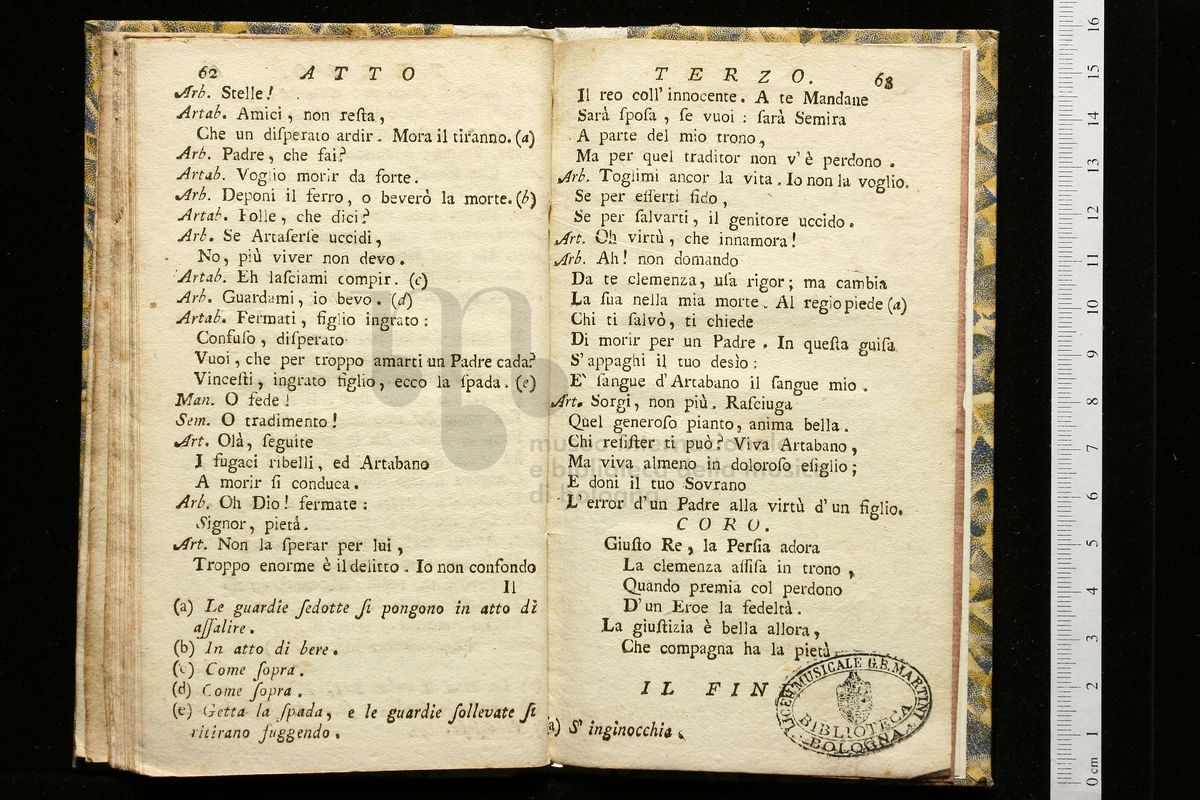 62 ATTO
Arb. Stelle!
Artab. Amici, non reſta,
Che un diſperato ardir. Mora il tiranno. (a)
Arb. Padre, che fai?
Artab. Voglio morir da forte.
Arb. Deponi il ferro, o beverò la morte. (b)
Artab. Folle, che dici?
Arb. Se Artaſerſe uccidi,
No, più viver non devo.
Artab. Eh laſciami compir. (c)
Arb. Guardami, io bevo. (d)
Artab. Fermati, figlio ingrato:
Confuſo, diſperato
Vuoi, che per troppo amarti un Padre cada?
Vinceſti, ingrato figlio, ecco la ſpada. (e)
Man. O fede!
Sem. O tradimento!
Art. Olà, ſeguite
I fugaci ribelli, ed Artabano
A morir ſi conduca.
Arb. Oh Dio! fermate:
Signor, pietà.
Art. Non la ſperar per lui,
Troppo enorme è il delitto. Io non confondo
Il
(a) Le guardie ſedotte ſi pongono in atto di
aſſalire.
(b) In atto di bere.
(c) Come ſopra.
(d) Come ſopra.
(e) Getta la ſpada, e le guardie ſollevate ſi
ritirano fuggendo.
TERZO. 63
Il reo coll' innocente. A te Mandane
Sarà ſpoſa, ſe vuoi: ſarà Semira
A parte del mio trono,
Ma per quel traditor non v'è perdono.
Arb. Toglimi ancor la vita. Io non la voglio.
Se per eſſerti fido,
Se per ſalvarti, il genitore uccido.
Art. Oh virtù, che innamora!
Arb. Ah! non domando
Da te clemenza, uſa rigor; ma cambia
La ſua nella mia morte. Al regio piede (a)
Chi ti ſalvò, ti chiede
Di morir per un Padre. In queſta guiſa
S'appaghi il tuo desìo:
E' ſangue d'Artabano il ſangue mio.
Art. Sorgi, non più. Raſciuga
Quel generoſo pianto, anima bella.
Chi reſiſter ti può? Viva Artabano,
Ma viva almeno in doloroſo eſiglio;
E doni il tuo Sovrano
L'error d'un Padre alla virtù d'un figlio.
CORO.
Giuſto Re, la Perſia adora
La clemenza aſſiſa in trono,
Quando premia col perdono
D'un Eroe la fedeltà.
La giuſtizia è bella allora,
Che compagna ha la pietà
IL FIN
(a) S'inginocchia.
LICEO MUSICALE G.B. MARTINI
BIBLIOTECA
BOLOGNA
museo internazionale
e biblioteca della musica
di bologna
16
15
14
13
12
11
10
9
8
7
6
5
4
3
2
1
0 cm